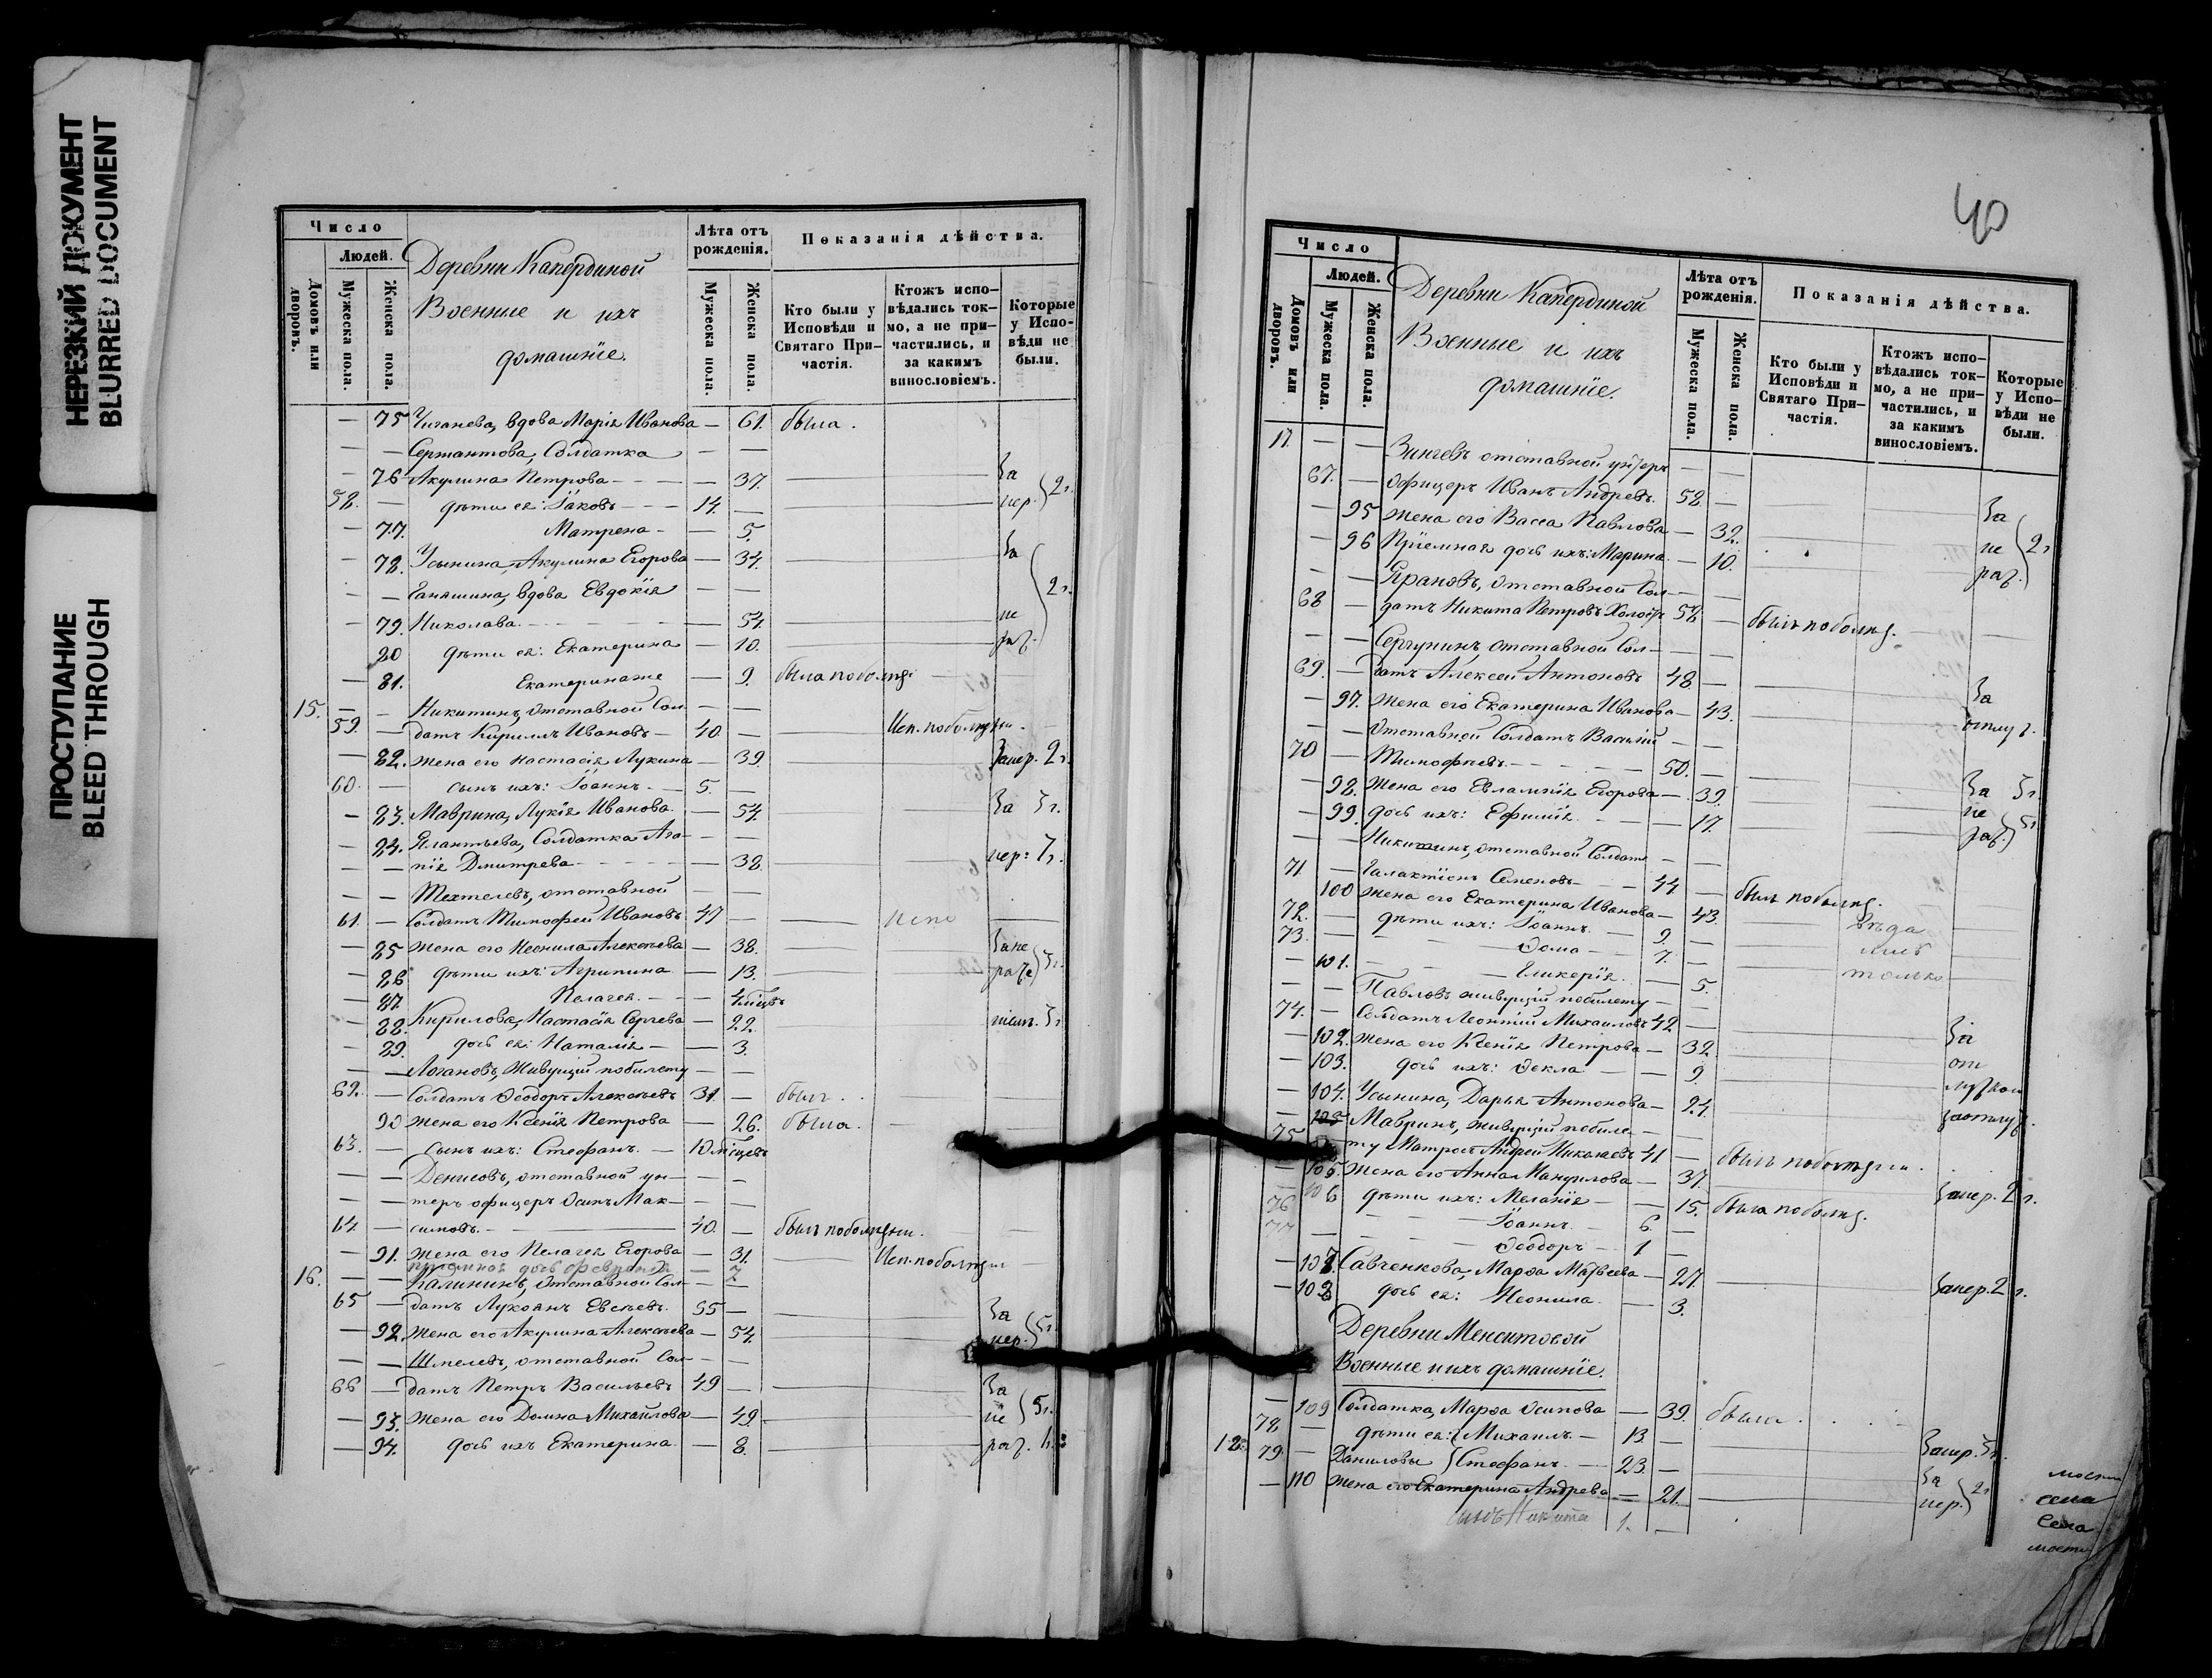 НЕРЕЗКИЙ ДОКУМЕНТ
BLURRED DOCUMENT
ПРОСТУПАНИЕ
BLEED THROUGH
Число
Людей.
Домовъ или дворовъ.
Мужеска пола.
Женска пола.
Деревни Капердиной
Военные и ихъ
домашнїе.
Лѣта отъ рожденія.
Мужеска пола.
Женска пола.
Показанія дѣйства.
Кто были у Исповѣди и Святаго При-частія.
Ктожъ испо-вѣдались ток-мо, а не при-частились, и за какимъ винословіемъ.
Которые у Испо-вѣди не были.
— 75 Чиганева, вдова Марія Иванова — 61. была.
— — Сержантова, Солдатка — —
— 76 Акулина Петрова — — 37. За
58. — дѣти ея: Іаковъ — 14. — нер. 2 г.
— 77. Матрена — — 5.
— 78. Усынина, Акулина Егорова — 34. За
— — вдова Евдокїя — — 2 г.
— 79. Николава — 54. не
80 дѣти ея: Екатерина — 10. рад.
— 81. Екатерина же — 9. была по болѣзн.
15. — — Никитинъ, отставной Сол — —
59. — датъ Кирилъ Ивановъ — 40. — Исп. по болѣзни.
— 82. жена его Настасія Лукина — 39. Занер. 2 г.
60. — сынъ ихъ: Іоаннъ — 5. —
— 83. Маврина, Лукїя Иванова — 54. За 3 г.
— 84. Солдатка Ага- — —
— — пїя Дмитрева — 38. нер: 7 г.
— — отставной — —
61. — Солдатъ Тимофей Ивановъ 47 —
— 85 жена его Неонила Алексѣева — 38. Зане
— 86 дѣти ихъ: Агрипина — 13. раде 3 г.
— 87. Пелагея — —
— 88. Кирилова, Настасїя Сергева — 22. 3 г.
— 89. дочь ея: Наталїя — — 3.
— — Логановъ, живущїй по билету — —
62. — Солдатъ Ѳеодоръ Алексѣевъ 31. — былъ.
90 жена его Ксенїя Петрова — 26. была.
63. — сынъ ихъ: Стефанъ — 10 мѣсцевъ
— — Денисовъ, отставной ун- — —
— — теръ офицеръ Осипъ Мак- — —
64 — симовъ — 40. — былъ по болѣзни.
— 91. жена его Пелагея Егорова — 31. Исп. по болѣзни
16. — — Калининъ, отставной Сол- — —
65 — датъ Лукоянъ Евсѣевъ. 55 — За
— 92. жена его Акулина Алексѣева — 54. нер. 3 г.
— — Шмелевъ, отставной Сол- — —
66 — датъ Петръ Васильевъ 49 — За
— 93. жена его Домна Михайлова — 49. не 3 г.
— 94. дочь ихъ Екатерина — 8. рад.
40
Число
Людей.
Домовъ или дворовъ.
Мужеска пола.
Женска пола.
Деревни Капердиной
Военные и ихъ
домашнїе.
Лѣта отъ рожденія.
Мужеска пола.
Женска пола.
Показанія дѣйства.
Кто были у Исповѣди и Святаго При-частія.
Ктожъ испо-вѣдались ток-мо, а не при-частились, и за какимъ винословіемъ.
Которые у Испо-вѣди не были.
17. — — Зинчевъ отставной унтеръ — —
67. — офицеръ Иванъ Андревъ. 58. — За
— 95 жена его Васса Павлова — 32. не 2 г.
— 96 Прїемная дочь ихъ: Марина — 10. рад.
— — отставной Сол- — —
68 — датъ Никита Петровъ Холостъ 58 — былъ по болѣзн.
— — Сергунинъ, отставной Сол- — —
69. — датъ Алексей Антоновъ 48. — За
— 97. жена его Екатерина Иванова — 43. отлуч.
— Отставной Солдатъ Василїй — —
70 — Тимофѣевъ. — 50. —
— 98. жена его Евлампїя Егорова — 39. За 3 г.
— 99. дочь ихъ: Ефимїя — 17. не рад. 3 г.
— Никишинъ, отставной Солдатъ — —
71 — Галактїонъ Семеновъ — 44 — былъ по болѣзн.
100 жена его Екатерина Иванова — 43.
72. — дѣти ихъ: Іоаннъ — 9. —
73. — Ѳома — 7. — только
— 101. — Гликерїя — 5.
— — Павловъ живущїй по билету — —
74. — Солдатъ Леонтїй Михаиловъ 42 — За
— 102. жена его Ксенїя Петрова — 32 от
— 103. дочь ихъ: Ѳекла — — 9.
— 104. Усынина, Дарья Антонова — 24. заотлуч.
— Мавринъ, живущїй по биле- — —
75 ту Матросъ Андрей Николаевъ 41. — былъ по болѣзни.
— 105 жена его Анна Мануилова — 37. Занер. 2 г.
106 дѣти ихъ: Меланїя — 15. была по болѣзн.
76 Іоаннъ — 6. —
77 — Ѳеодоръ — 1 —
— 107. Савченкова, Марѳа Матвеева — 27. Занер. 2 г.
— 108 дочь ея: Неонила — 3.
Деревни Менситовой
Военные и ихъ домашнїе.
— 109 Солдатка, Марѳа Осипова — 39. была.
78 — дѣти ея: Михаилъ — 13. —
18. 79. — Даниловы Стефанъ — 23. — Занер. 3 г.
— 110 жена его Екатерина Андрева — 21. За нер. 2 г.
сынъ Никита 1. —
села
Села